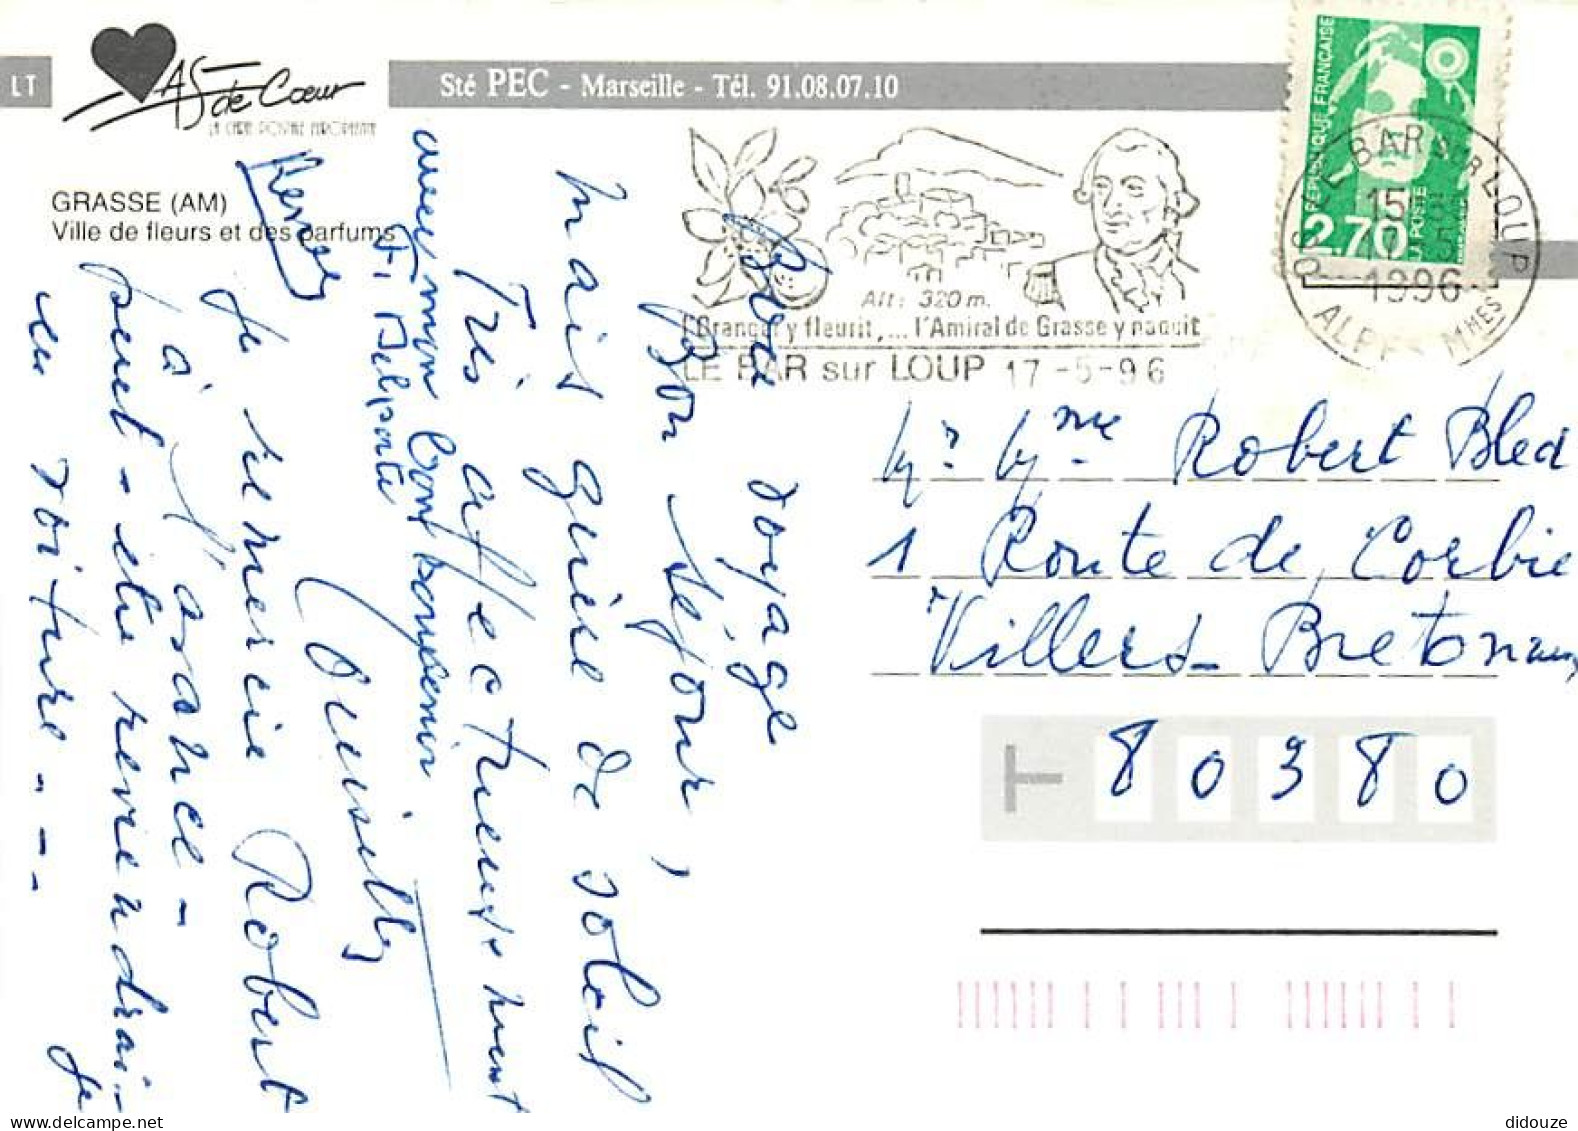 LT
AS de Cœur
LA CARTE POSTALE EUROPEENNE
Sté PEC - Marseille - Tél. 91.08.07.10
GRASSE (AM)
Ville de fleurs et des parfums
RÉPUBLIQUE FRANÇAISE
2.70
LA POSTE
LE BAR SUR LOUP
15H
17 5
1996
ALPES Mmes
Alt: 320 m.
l'Oranger y fleurit,... l'Amiral de Grasse y naquit
LE BAR sur LOUP 17-5-96
Mr. Mme Robert Bled
1 Route de Corbie
Villers-Bretonneux
80380
voyage
Bon séjour,
mais guère de soleil
Très affectueusement
avec mon bon souvenir
Je remercie Robert
à l'avance -
peut-être reviendrai-
Je
en voiture - - -
didouze